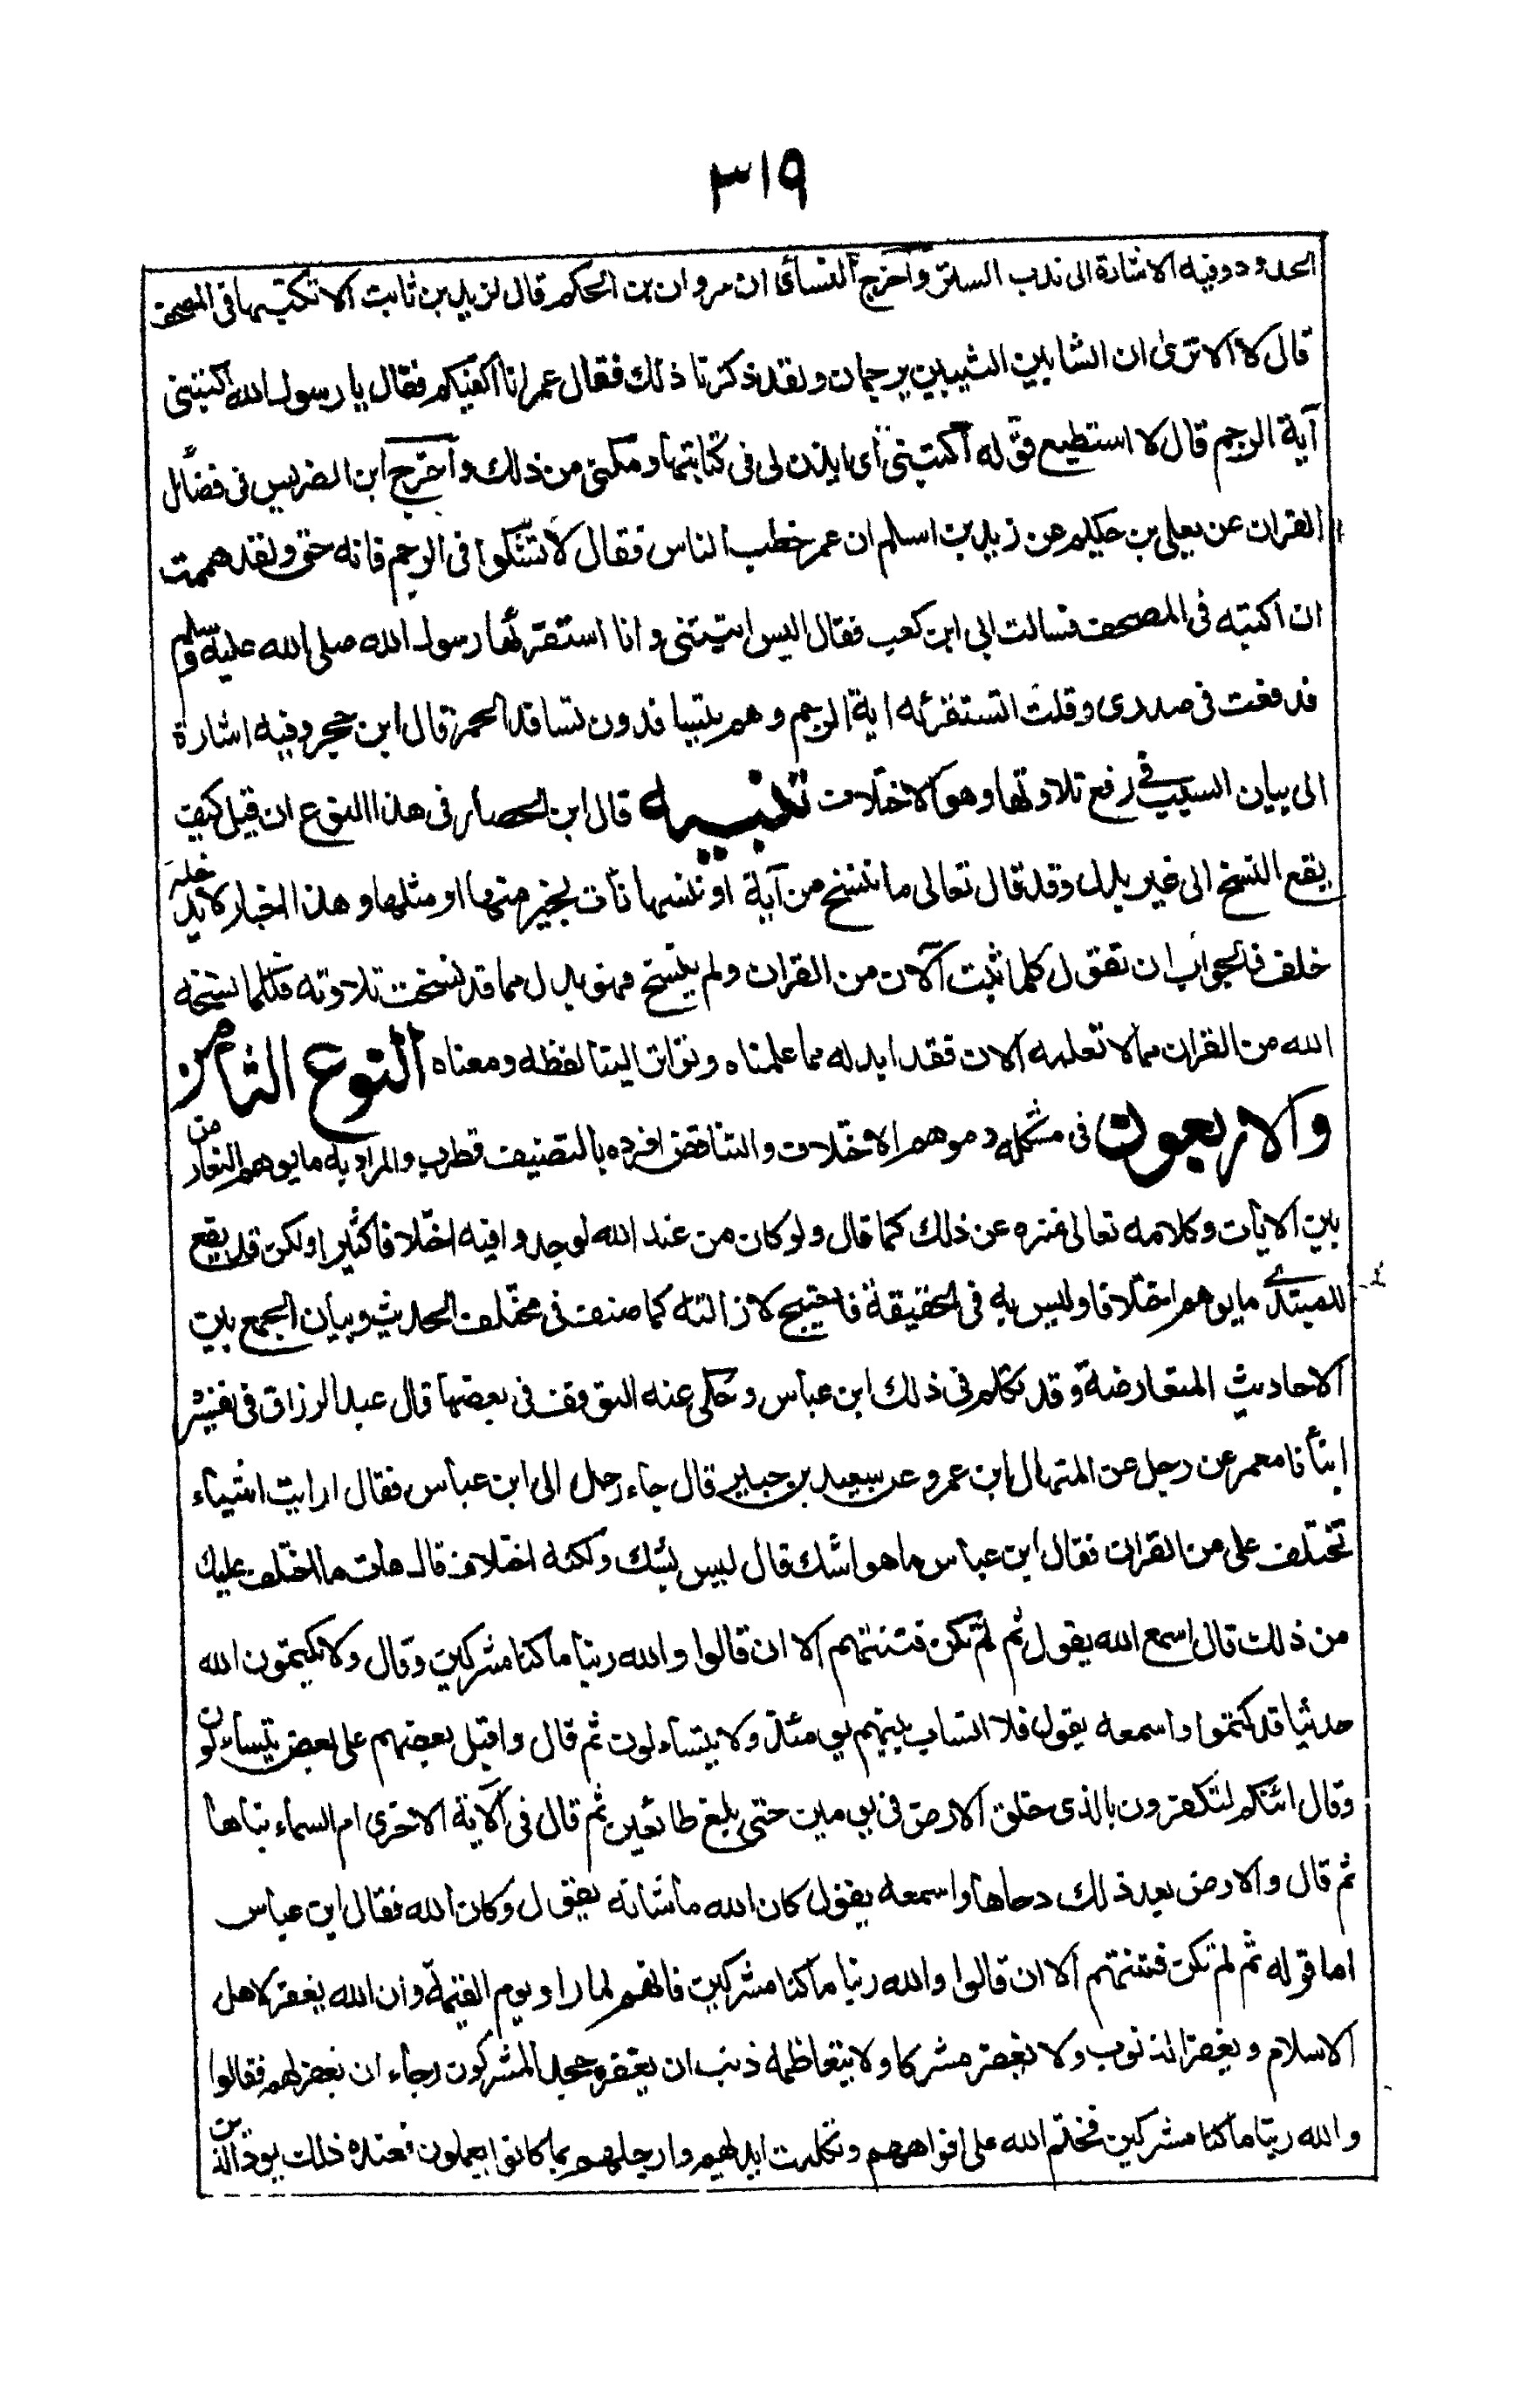 ٣١٩
الحدود وفيه الاشارة الى ندب الستر وآخرج النسائى ان مروان بن الحكم قال لزيد بن ثابت الا تكتبها فى المصحف
قال لا الا ترى ان الشابين الثيبين يرجمان ولقد ذكرنا ذلك فقال عمر انا اكفيكم فقال يا رسول الله اكتبنى
آية الرجم قال لا استطيع قوله اكتبنى اى ايذن لى فى كتابتها ومكنى من ذلك وآخرج ابن الضريس فى فضائل
القران عن يعلى بن حكيم عن زيد بن اسلم ان عمر خطب الناس فقال لا تشكوا فى الرجم فانه حق ولقد هممت
ان اكتبه فى المصحف فسالت ابى ابن كعب فقال اليس اتيتنى وانا استقرئها رسول الله صلى الله عليه وسلم
فدفعت فى صدرى وقلت اتستقرئه اية الرجم وهم يتسافدون تسافد الحمر قال ابن حجر وفيه اشارة
الى بيان السبب فى رفع تلاوتها وهو الاختلاف تنبيه قال ابن الحصار فى هذا النوع ان قيل كيف
يقع النسخ الى غير بدل وقد قال تعالى ما ننسخ من آية او ننسها نأت بخير منها او مثلها وهذا اخبار لا يدخله
خلف فالجواب ان تقول كلما ثبت الآن من القران ولم ينسخ فهو بدل مما قد نسخت تلاوته فكلما نسخه
الله من القران مما لا نعلمه الان فقد ابدله مما علمناه وتواتر الينا لفظه ومعناه النوع الثامن
والاربعون فى مشكله وموهم الاختلاف والتناقض افرده بالتصنيف قطرب والمراد به ما يوهم التعارض
بين الايات وكلامه تعالى منزه عن ذلك كما قال ولو كان من عند الله لوجدوا فيه اختلافا كثيرا ولكن قد يقع
للمبتدى ما يوهم اختلافا وليس به فى الحقيقة فاحتيج لازالته كما صنف فى مختلف الحديث وبيان الجمع بين
الاحاديث المتعارضة وقد تكلم فى ذلك ابن عباس وحكى عنه التوقف فى بعضها قال عبد الرزاق فى تفسيره
انبأنا معمر عن رجل عن المنهال ابن عمرو عن سعيد بن جبير قال جاء رجل الى ابن عباس فقال ارايت اشياء
تختلف على من القران فقال ابن عباس ما هو اشك قال ليس بشك ولكنه اختلاف قال هات ما اختلف عليك
من ذلك قال اسمع الله يقول ثم لم تكن فتنتهم الا ان قالوا والله ربنا ما كنا مشركين وقال ولا يكتمون الله
حديثا قد كتموا واسمعه يقول فلا انساب بينهم يومئذ ولا يتساءلون ثم قال واقبل بعضهم على بعض يتساءلون
وقال ائنكم لتكفرون بالذى خلق الارض فى يومين حتى بلغ طائعين ثم قال فى الآية الاخرى ام السماء بناها
ثم قال والارض بعد ذلك دحاها واسمعه يقول كان الله ما شانه يقول وكان الله فقال ابن عباس
اما قوله ثم لم تكن فتنتهم الا ان قالوا والله ربنا ما كنا مشركين فانهم لما راو يوم القيمة وان الله يغفر لاهل
الاسلام ويغفر الذنوب ولا يغفر مشركا ولا يتعاظمه ذنب ان يغفره جحد المشركون رجاء ان يغفر لهم فقالوا
والله ربنا ما كنا مشركين فختم الله على افواههم وتكلمت ايديهم وارجلهم بما كانوا يعملون فعنده ذلك يود الذين